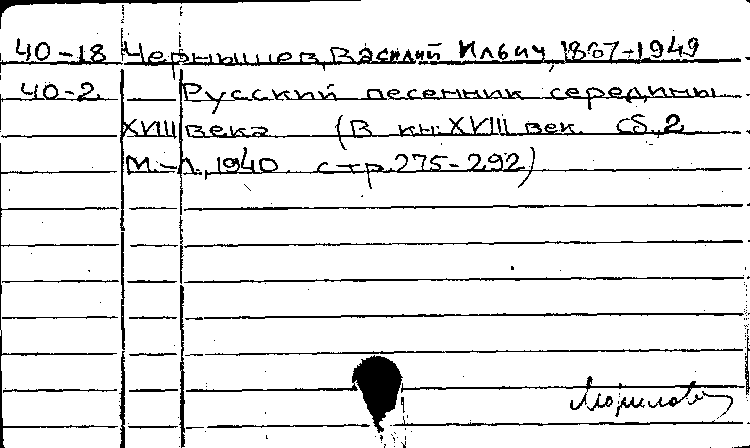 40-18 Чернышев, Василий Ильич, 1867-1949
40-2 Русский песенник середины
XVIII века (В кн: XVIII век. сб, 2
М.-Л., 1940. стр. 275-292)